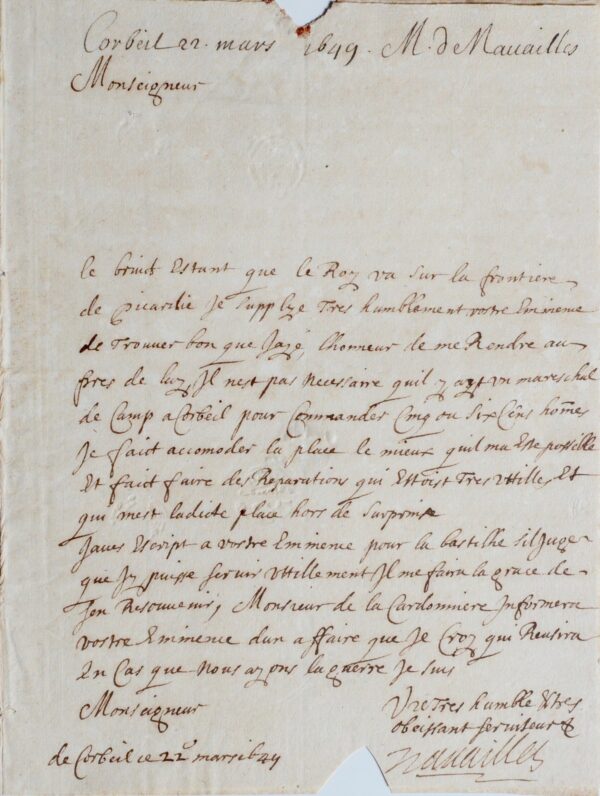 Corbeil 22. mars 1649. M. de Navailles
Monseigneur
le bruict Estant que le Roy va sur la frontiere
de picardie Je supplye Tres humblement vostre Eminence
de Trouver bon que Jayé lhonneur de me Rendre au
pres de luy, Il nest pas Necessaire quil y ayt vn mareschal
de Camp a Corbeil pour Commander Cinq ou Six Cens homes
Je faict accomoder la place le mieux quil ma Esté possille
Et faict faire des Reparations qui Estoist Tres vtilles, Et
qui mest ladicte place hors de Surprinse
Javes Escript a vostre Eminence pour la bastille sil Juge
que Jy puisse servir vtillement Il me faira la grace de
son Resouvenir, Monsieur de la Cardonniere Informera
vostre Eminence dun affaire que Je Croy qui Reusira
En Cas que Nous ayons la guerre Je suis
Monseigneur
Vre Tres humble & tres
obeissant serviteur
de Corbeil ce 22 mars 1649
Navailles